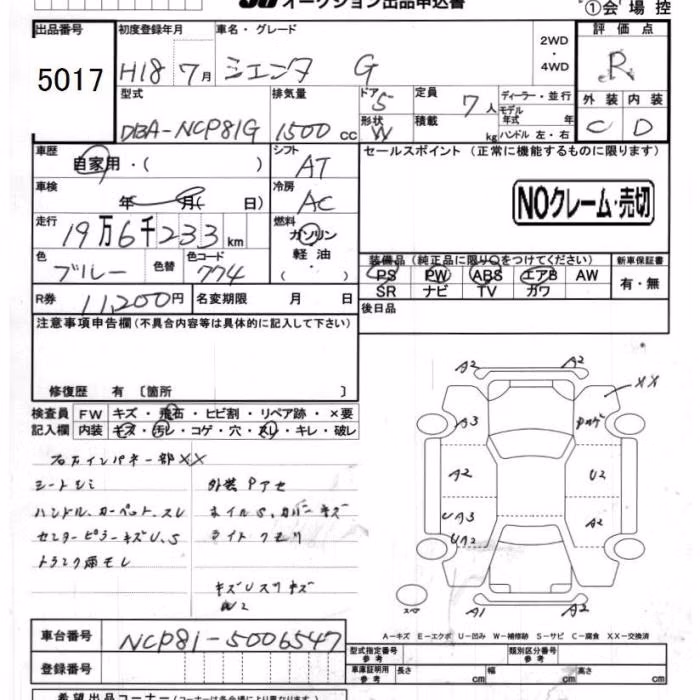 オークション出品申込書
①会場控
出品番号 初度登録年月 車名・グレード 2WD ・ 4WD 評価点
5017 H18 7月 シエンタ G R
型式 排気量 ドア 5 定員 7人 ディーラー・並行
モデル 年式 年
外装 内装
DBA-NCP81G 1500cc 形状 W 積載 kg ハンドル 左・右 C D
車歴 自家用・( ) シフト AT
セールスポイント (正常に機能するものに限ります)
車検 年 月( 日) 冷房 AC
NOクレーム・売切
走行 19万6千233km 燃料 ガソリン 軽油・( )
色 ブルー 色替 色コード 774
装備品(純正品に限り○をつけてください) 新車保証書
PS PW ABS エアB AW 有・無
SR ナビ TV ガワ
R券 11,200円 名変期限 月 日 後日品
注意事項申告欄(不具合内容等は具体的に記入して下さい)
修復歴 有 〔箇所 〕
検査員 FW キズ・飛石・ヒビ割・リペア跡・×要
記入欄 内装 キズ・汚レ・コゲ・穴・スレ・キレ・破レ
右フロントインパネ一部XX
シートシミ 外装Pアセ
ハンドル、カーペット、スレ ホイルS、カバーキズ
センターピラーキズU、S ライトクモリ
トランク雨モレ
キズUスリキズ
W2
A2 A2
XX
A3
A2 U2
UA3 A2
UA2
スペア A1 A2
A-キズ E-エクボ U-凹み W-補修跡 S-サビ C-腐食 XX-交換済
車台番号 NCP81-5006547
型式指定番号 参考 類別区分番号 参考
登録番号
車庫証明用 参考 長さ cm 幅 cm 高さ cm
希望出品コーナー(コーナーは各会場により異なります)